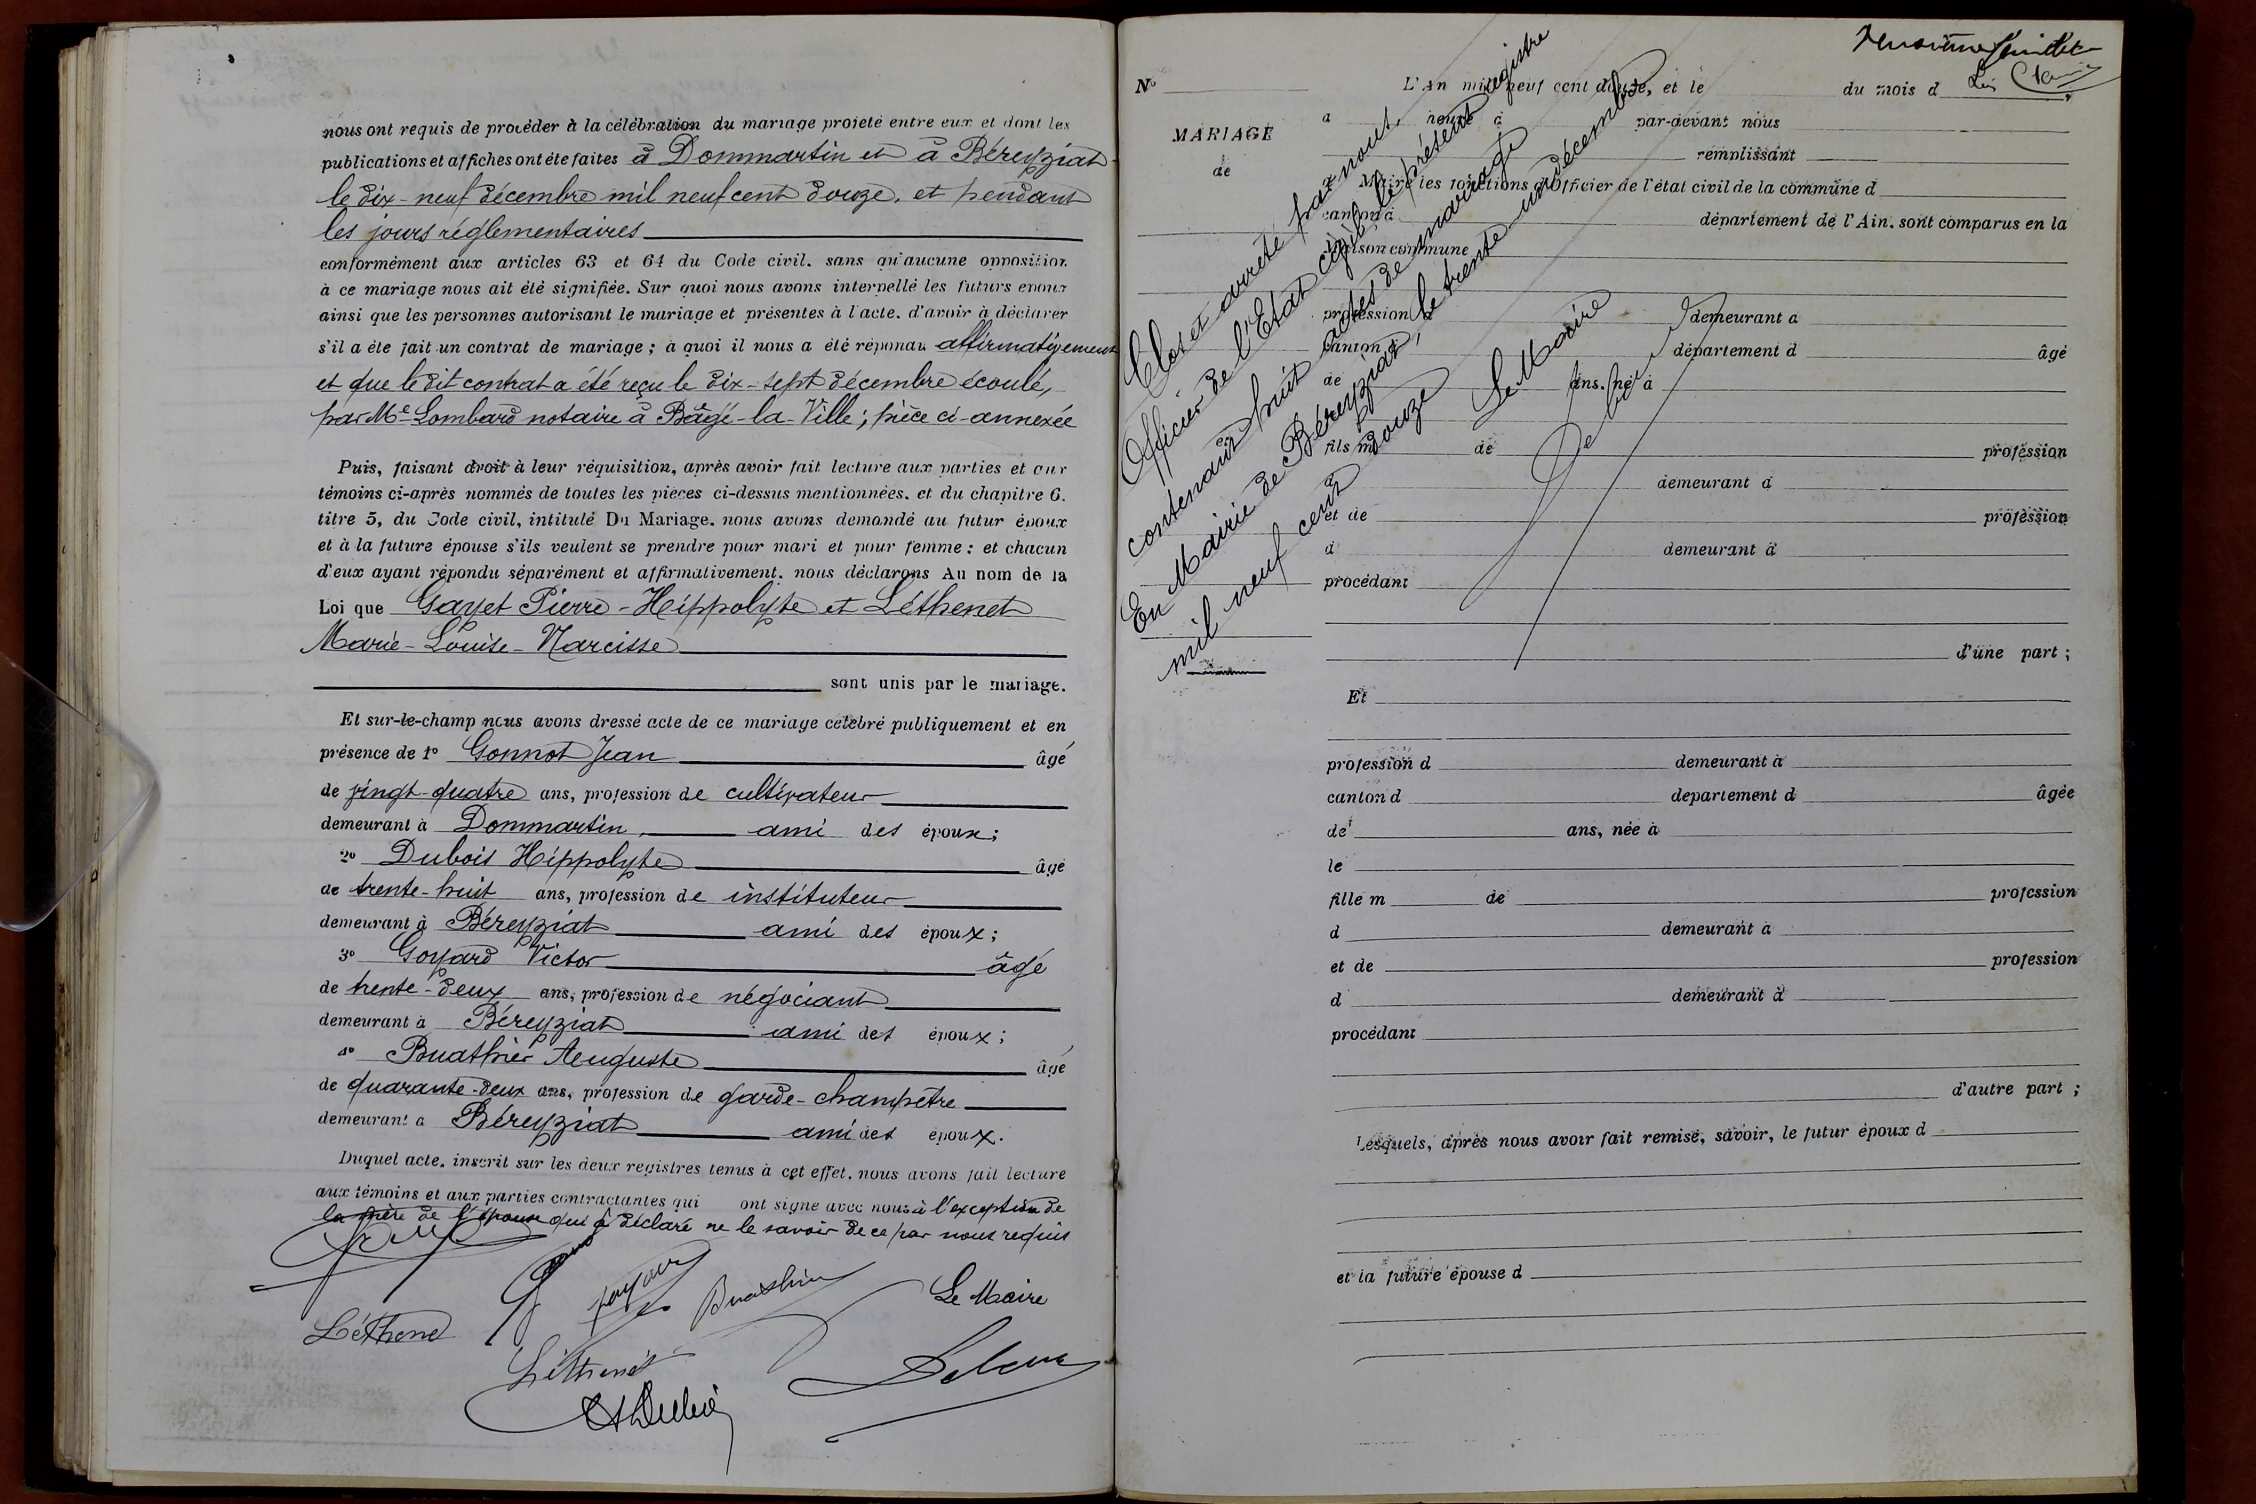 nous ont requis de procéder à la célébration du mariage projeté entre eux et dont les
publications et affiches ont été faites à Dommartin et à Béreyziat
le dix-neuf décembre mil neuf cent douze, et pendant
les jours réglementaires
conformément aux articles 63 et 64 du Code civil. sans qu'aucune opposition
à ce mariage nous ait été signifiée. Sur quoi nous avons interpellé les futurs époux
ainsi que les personnes autorisant le mariage et présentes à l'acte. d'avoir à déclarer
s'il a été fait un contrat de mariage ; à quoi il nous a été répondu affirmativement
et que le dit contrat a été reçu le dix-sept décembre écoulé,
par Me Lombard notaire à Bâgé-la-Ville ; pièce ci-annexée
Puis, faisant droit à leur réquisition, après avoir fait lecture aux parties et aux
témoins ci-après nommés de toutes les pièces ci-dessus mentionnées. et du chapitre 6.
titre 5, du Code civil, intitulé Du Mariage. nous avons demandé au futur époux
et à la future épouse s'ils veulent se prendre pour mari et pour femme : et chacun
d'eux ayant répondu séparément et affirmativement. nous déclarons Au nom de la
Loi que Gayet Pierre-Hippolyte et Léthenet
Marie-Louise-Narcisse
sont unis par le mariage.
Et sur-le-champ nous avons dressé acte de ce mariage célébré publiquement et en
présence de 1º Gonnot Jean âgé
de vingt-quatre ans, profession de cultivateur
demeurant à Dommartin, ami des époux ;
2º Dubois Hippolyte âgé
de trente-huit ans, profession de instituteur
demeurant à Béreyziat ami des époux ;
3º Goyard Victor âgé
de trente-deux ans, profession de négociant
demeurant à Béreyziat ami des époux ;
4º Buathier Auguste âgé
de quarante-deux ans, profession de garde-champêtre
demeurant à Béreyziat ami des époux.
Duquel acte. inscrit sur les deux registres tenus à cet effet. nous avons fait lecture
aux témoins et aux parties contractantes qui ont signé avec nous à l'exception de
la mère de l'époux qui a déclaré ne le savoir de ce par nous requis
Goyard
Buathier
Le Maire
Léthenet
Léthenet
H Dubois
feuillet
Nº
L'An mil neuf cent douze, et le du mois d
MARIAGE
de
a heure à par-devant nous
remplissant
Maire les fonctions d'Officier de l'état civil de la commune d
canton d département de l'Ain. sont comparus en la
maison commune
profession d demeurant à
canton d département d âgé
de ans. né à
le
fils m de profession
d demeurant à
et de profession
d demeurant à
procédant
d'une part ;
Clos et arrêté par nous,
Officier de l'Etat civil, le présent registre
contenant huit actes de mariage
En Mairie de Béreyziat, le trente un décembre
mil neuf cent douze
Le Maire
Et
profession d demeurant à
canton d département d âgée
de ans, née à
le
fille m de profession
d demeurant à
et de profession
d demeurant à
procédant
d'autre part ;
Lesquels, après nous avoir fait remise, savoir, le futur époux d
et la future épouse d